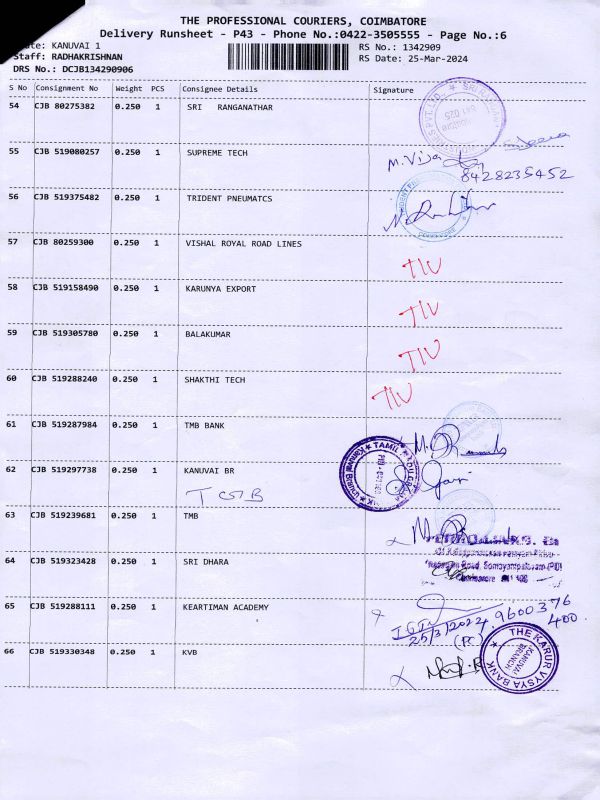 THE PROFESSIONAL COURIERS, COIMBATORE
Delivery Runsheet - P43 - Phone No.:0422-3505555 - Page No.:6
KANUVAI 1
RS No.: 1342909
Staff: RADHAKRISHNAN
RS Date: 25-Mar-2024
DRS No.: DCJB134290906
S No Consignment No Weight PCS Consignee Details Signature
54 CJB 80275382 0.250 1 SRI RANGANATHAR
55 CJB 519080257 0.250 1 SUPREME TECH
8428235452
56 CJB 519375482 0.250 1 TRIDENT PNEUMATCS
57 CJB 80259300 0.250 1 VISHAL ROYAL ROAD LINES
58 CJB 519158490 0.250 1 KARUNYA EXPORT
59 CJB 519305780 0.250 1 BALAKUMAR
60 CJB 519288240 0.250 1 SHAKTHI TECH
61 CJB 519287984 0.250 1 TMB BANK
62 CJB 519297738 0.250 1 KANUVAI BR
63 CJB 519239681 0.250 1 TMB
64 CJB 519323428 0.250 1 SRI DHARA
65 CJB 519288111 0.250 1 KEARTIMAN ACADEMY
9600376
400
25/3/2024
(PC)
66 CJB 519330348 0.250 1 KVB
THE KARUR VYSYA BANK
KANUVAI
BRANCH